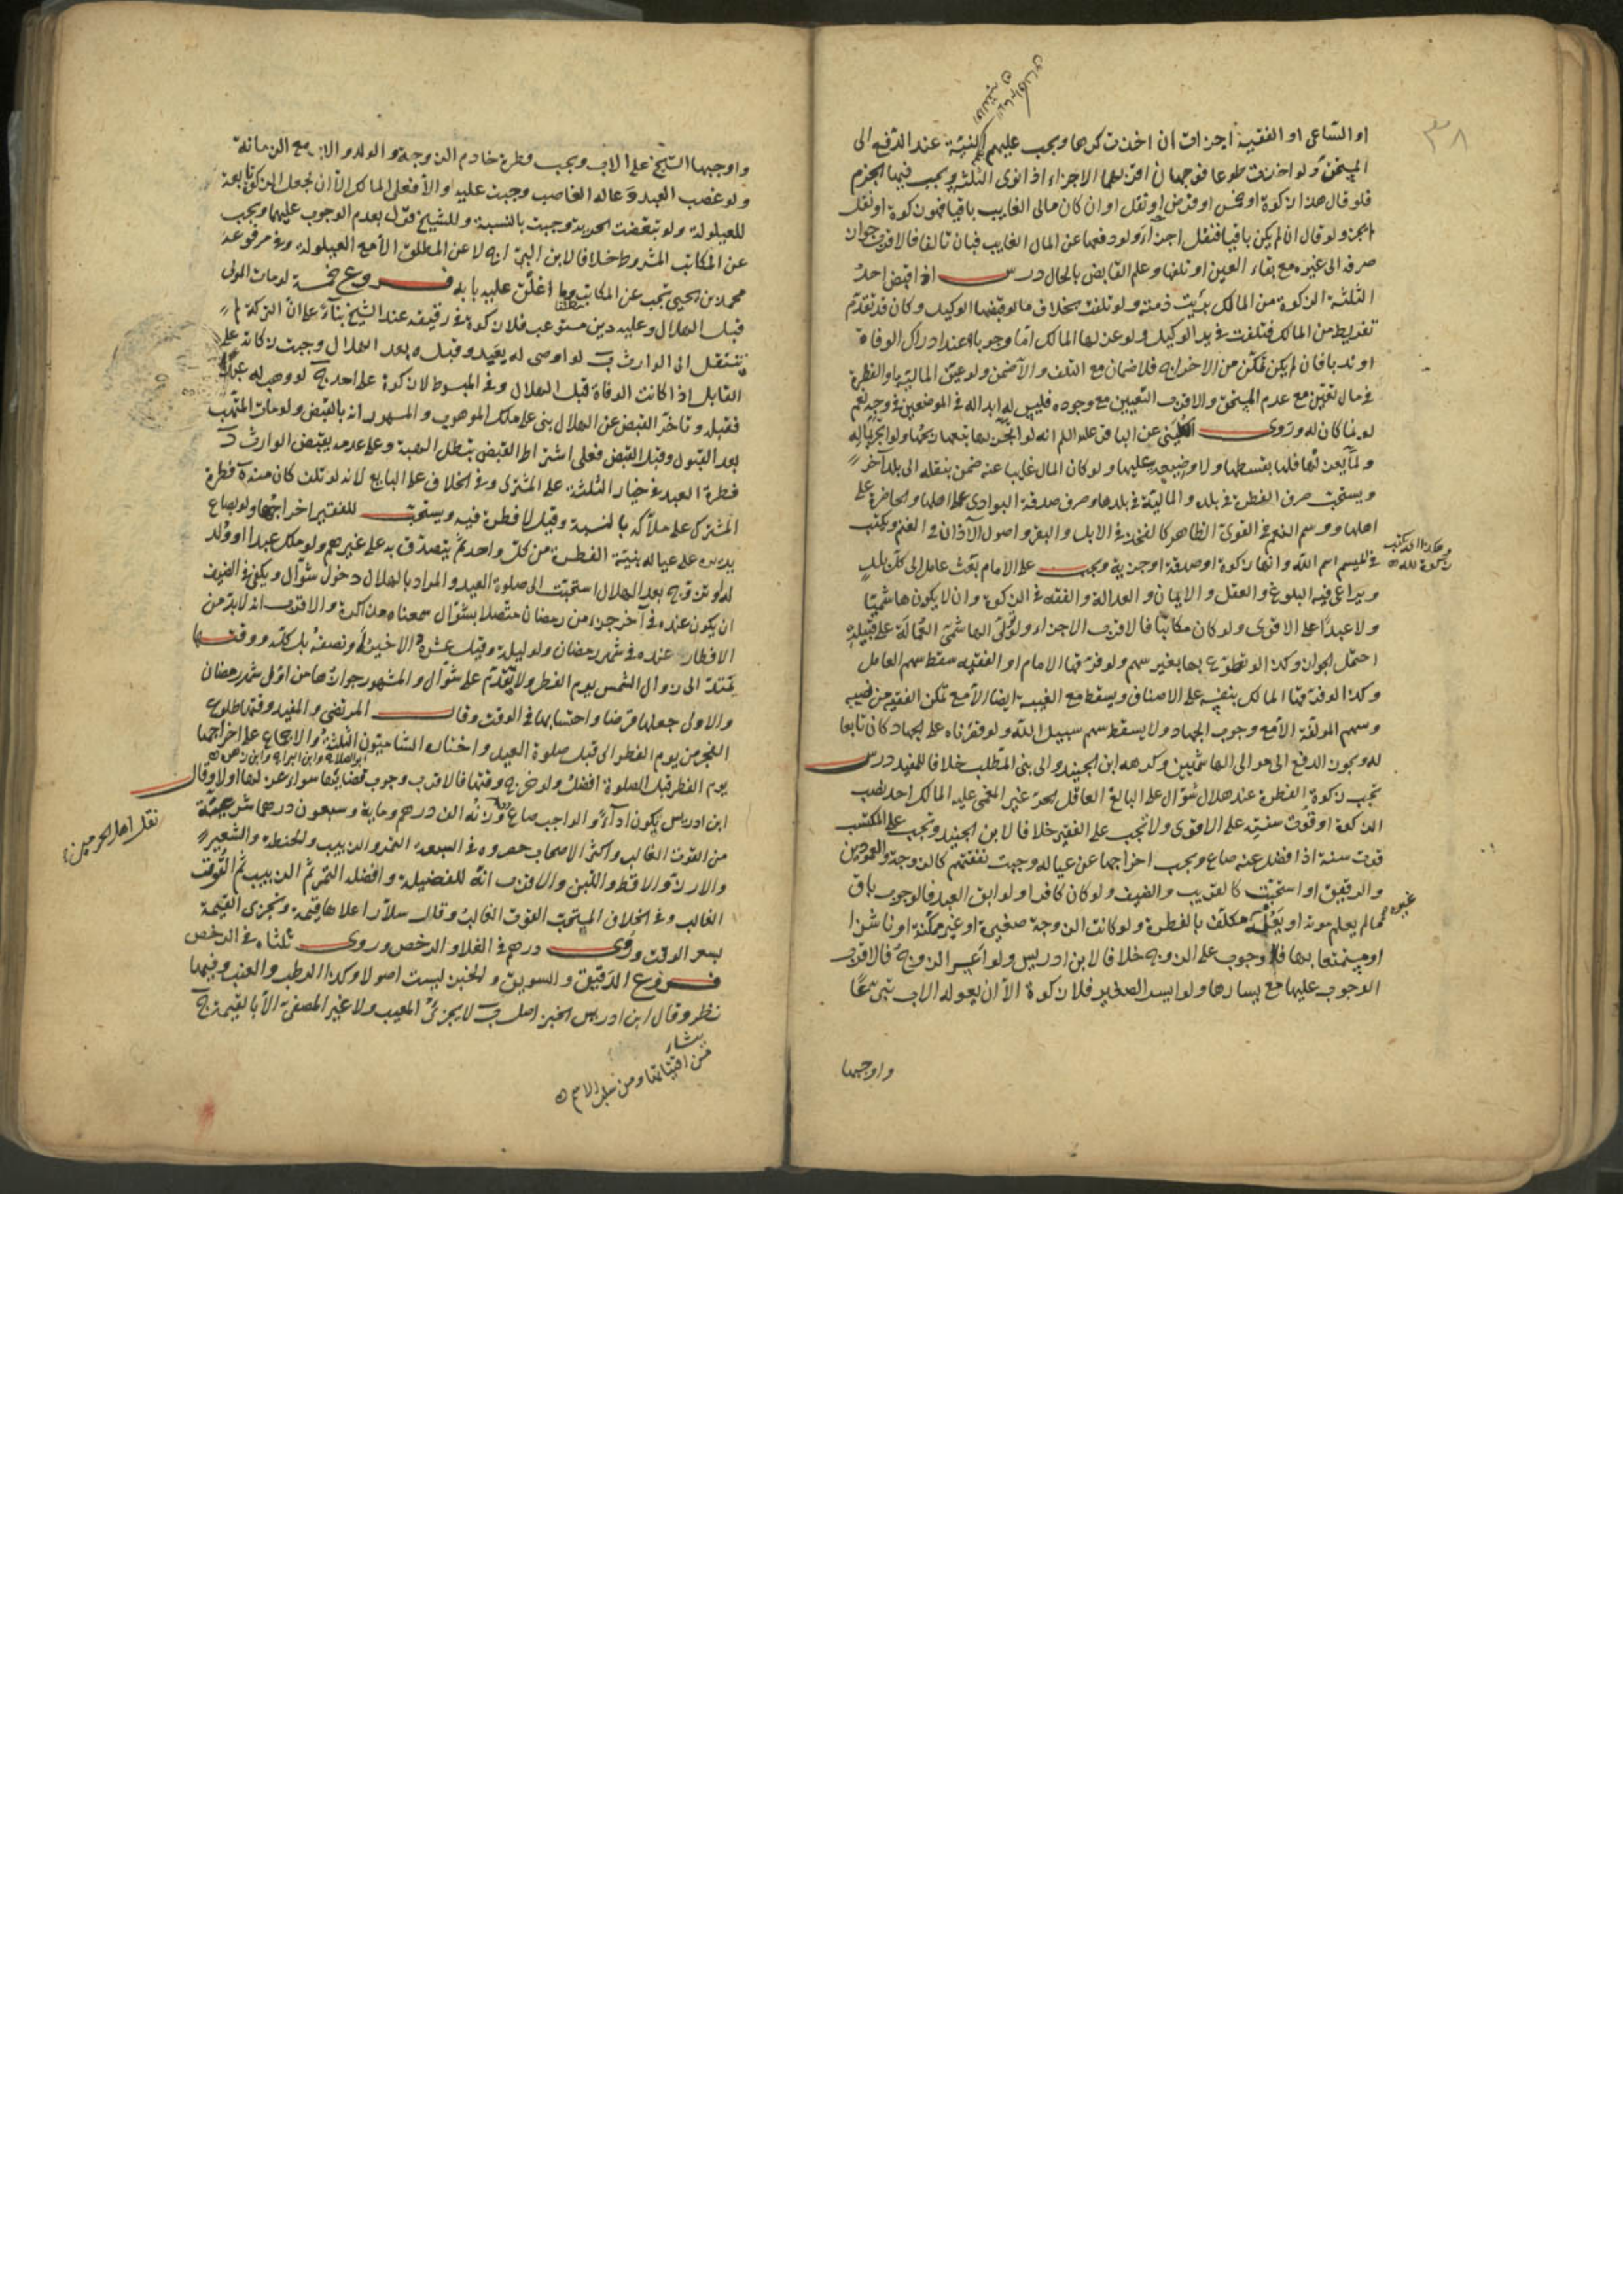 او الساعى او الفقيه اجزات ان اخذت كرها ويجب عليهم النية عند الدفع الى
المستحق ولو اخذت طوعا فوجهان اقربهما الاجزاء اذا نوى الثلثة ويجب فيها الجزم
فلو قال هذا زكوة او خمس او فرض او نفل او ان كان مالى الغايب باقيا فهو زكوة او نفل
لم يجز ولو قال ان لم يكن باقيا فنفل اجزاء ولو دفعها عن المال الغايب فبان تالفا فالاقرب جواز
صرفه الى غيره مع بقاء العين او تلفها وعلم القابض بالحال درس اذا قبض احد
الثلثة الزكوة من المالك برئت ذمته ولو تلفت بخلاف ما لو قبضها الوكيل وكان قد تقدم
تفريط من المالك فتلفت فى يد الوكيل ولو عزلها المالك اما وجوبا عند ادراك الوفاة
او ندبا فان لم يكن تمكن من الاخراج فلا ضمان مع التلف والا ضمن ولو عين المالية او الفطرة
فى مال تعين مع عدم المستحق والاقرب التعيين مع وجوده فليس له ابداله فى الموضعين فى وجه نعم
لو نما كان له وروى الكلينى عن الباقر عليه السلم انه لو اتجر بها
ولما بعزلها فلها بقسطها ولا وضيعة عليها ولو كان المال غايبا عنه ضمن بنقله الى بلد آخر
ويستحب صرف الفطرة فى بلده والمالية فى بلدها وصرف صدقة البوادى على اهلها والحاضرة على
اهلها ووسم النعم فى القوى الظاهر كالفخذ فى الابل والبقر واصول الآذان فى الغنم ويكتب
فى الميسم اسم الله وانها زكوة او صدقة او جزية ويجب على الامام بعث عامل الى كل بلد
ويراعى فيه البلوغ والعقل والايمان والعدالة والفقه فى الزكوة وان لا يكون هاشميا
ولا عبدا على الاقوى ولو كان مكاتبا فالاقرب الاجزاء ولو تولى الهاشمى العمالة على قبيله
احتمل الجواز وكذا لو تطوع بها بغير سهم ولو فرقها الامام او الفقيه سقط سهم العامل
وكذا لو فرقها المالك بنفسه على الاصناف ويسقط مع الغيبة ايضا الا مع تمكن الفقيه من نصبه
وسهم المولفة الا مع وجوب الجهاد ولا يسقط سهم سبيل الله ولو قصرناه على الجهاد كان تابعا
له ويجوز الدفع الى موالى الهاشميين وكرهه ابن الجنيد والى بنى المطلب خلافا للمفيد درس
تجب زكوة الفطرة عند هلال شوال على البالغ العاقل الحر غير المغمى عليه المالك احد نصب
الزكوة او قوت سنته على الاقوى ولا تجب على الفقير خلافا لابن الجنيد وتجب على المكتسب
قوت سنة اذا فضل عنه صاع ويجب اخراجها عن عياله وجبت نفقتهم كالزوجة والعمودين
والرقيق او استحبت كالقريب والضيف ولو كان كافرا ولو ابق العبد فالوجوب باق
ما لم يعلم موته او يعله مكلف بالفطرة ولو كانت الزوجة صغيرة او غير ممكنة او ناشزا
او متمتعا بها فلا وجوب على الزوج خلافا لابن ادريس ولو اعسر الزوج فالاقرب
الوجوب عليها مع يسارها ولو ايسر الصغير فلا زكوة الا ان يعوله الاب تبرعا
وهكذا كتب
زكوة لله
غيره
واوجبها
واوجبها الشيخ على الاب ويجب فطرة خادم الزوجة والولد والاب مع الزمانة
ولو غصب العبد وعاله الغاصب وجبت عليه والا فعلى المالك الا ان نجعل الزكوة تابعة
للعيلولة ولو تبعضت الحرية وجبت بالنسبة وللشيخ قول بعدم الوجوب عليهما ويجب
عن المكاتب المشروط خلافا لابن البراج لا عن المطلق الا مع العيلولة وفى مرفوعة
محمد بن يحيى تجب عن المكاتب وما اغلق عليه بابه فروع خمسة لو مات المولى
قبل الهلال وعليه دين مستوعب فلا زكوة فى رقيقه عند الشيخ بناء على ان التركة لا
تنتقل الى الوارث ب لو اوصى له بعبد وقبله بعد الهلال وجبت زكاته على
القابل اذا كانت الوفاة قبل الهلال وفى المبسوط لا زكوة على احد ج لو وهب له عبدا
فقبله وتاخر القبض عن الهلال بنى على ملك الموهوب والمشهور انه بالقبض ولو مات المتهب
بعد القبول وقبل القبض فعلى اشتراط القبض تبطل الهبة وعلى عدمه يقبض الوارث د
فطرة العبد فى خيار الثلثة على المشترى وفى الخلاف على البايع لانه لو تلف كان منه ه فطرة
المشترك على ملاكه بالنسبة وقيل لا فطرة فيه ويستحب للفقير اخراجها ولو بصاع
يديره على عياله بنية الفطرة من كل واحد ثم يتصدق به على غيرهم ولو ملك عبدا او ولد
له او تزوج بعد الهلال استحبت الى صلوة العيد والمراد بالهلال دخول شوال ويكفى فى الضيف
ان يكون عنده فى آخر جزء من رمضان متصلا بشوال سمعناه مذاكرة والاقرب انه لا بد من
الافطار عنده فى شهر رمضان ولو ليلة وقيل عشره الاخير ونصفه بل كله ووقتها
يمتد الى زوال الشمس يوم الفطر ولا تقدم على شوال والمشهور جوازها من اول شهر رمضان
والاولى جعلها قرضا واحتسابها فى الوقت وقال المرتضى والمفيد وقتها طلوع
الفجر من يوم الفطر الى قبل صلوة العيد واختاره الشاميون الثلثة والاجماع على اخراجها
ابو الصلاح وابن البراج وابن زهره
يوم الفطر قبل الصلوة افضل ولو خرج وقتها فالاقرب وجوب قضائها سواء عزلها اولا وقال
ابن ادريس يكون اداء والواجب صاع وزنه الف درهم وماية وسبعون درهما شرعية
من القوت الغالب واكثر الاصحاب حصروه فى السبعة التمر والزبيب والحنطة والشعير
والارز والاقط واللبن والاقرب انه للفضيلة وافضله التمر ثم الزبيب ثم القوت
الغالب وفى الخلاف المستحب القوت الغالب وقال سلار اعلاها قيمة وتجزى القيمة
بسعر الوقت وروى درهم فى الغلاء والرخص وروى ثلثاه فى الرخص
فروع الدقيق والسويق والخبز ليست اصولا وكذا الرطب والعنب وفيهما
نظر وقال ابن ادريس الخبز اصل ب لا يجزى المعيب ولا غير المصفى الا بالقيمة ج
نقل اهل الحرمين